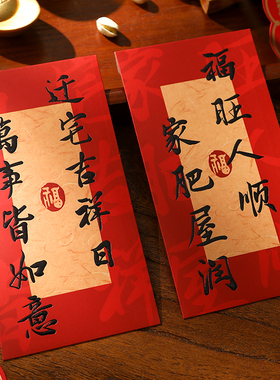 迁宅吉祥日
萬事皆如意
福
福旺人顺
家肥屋润
福